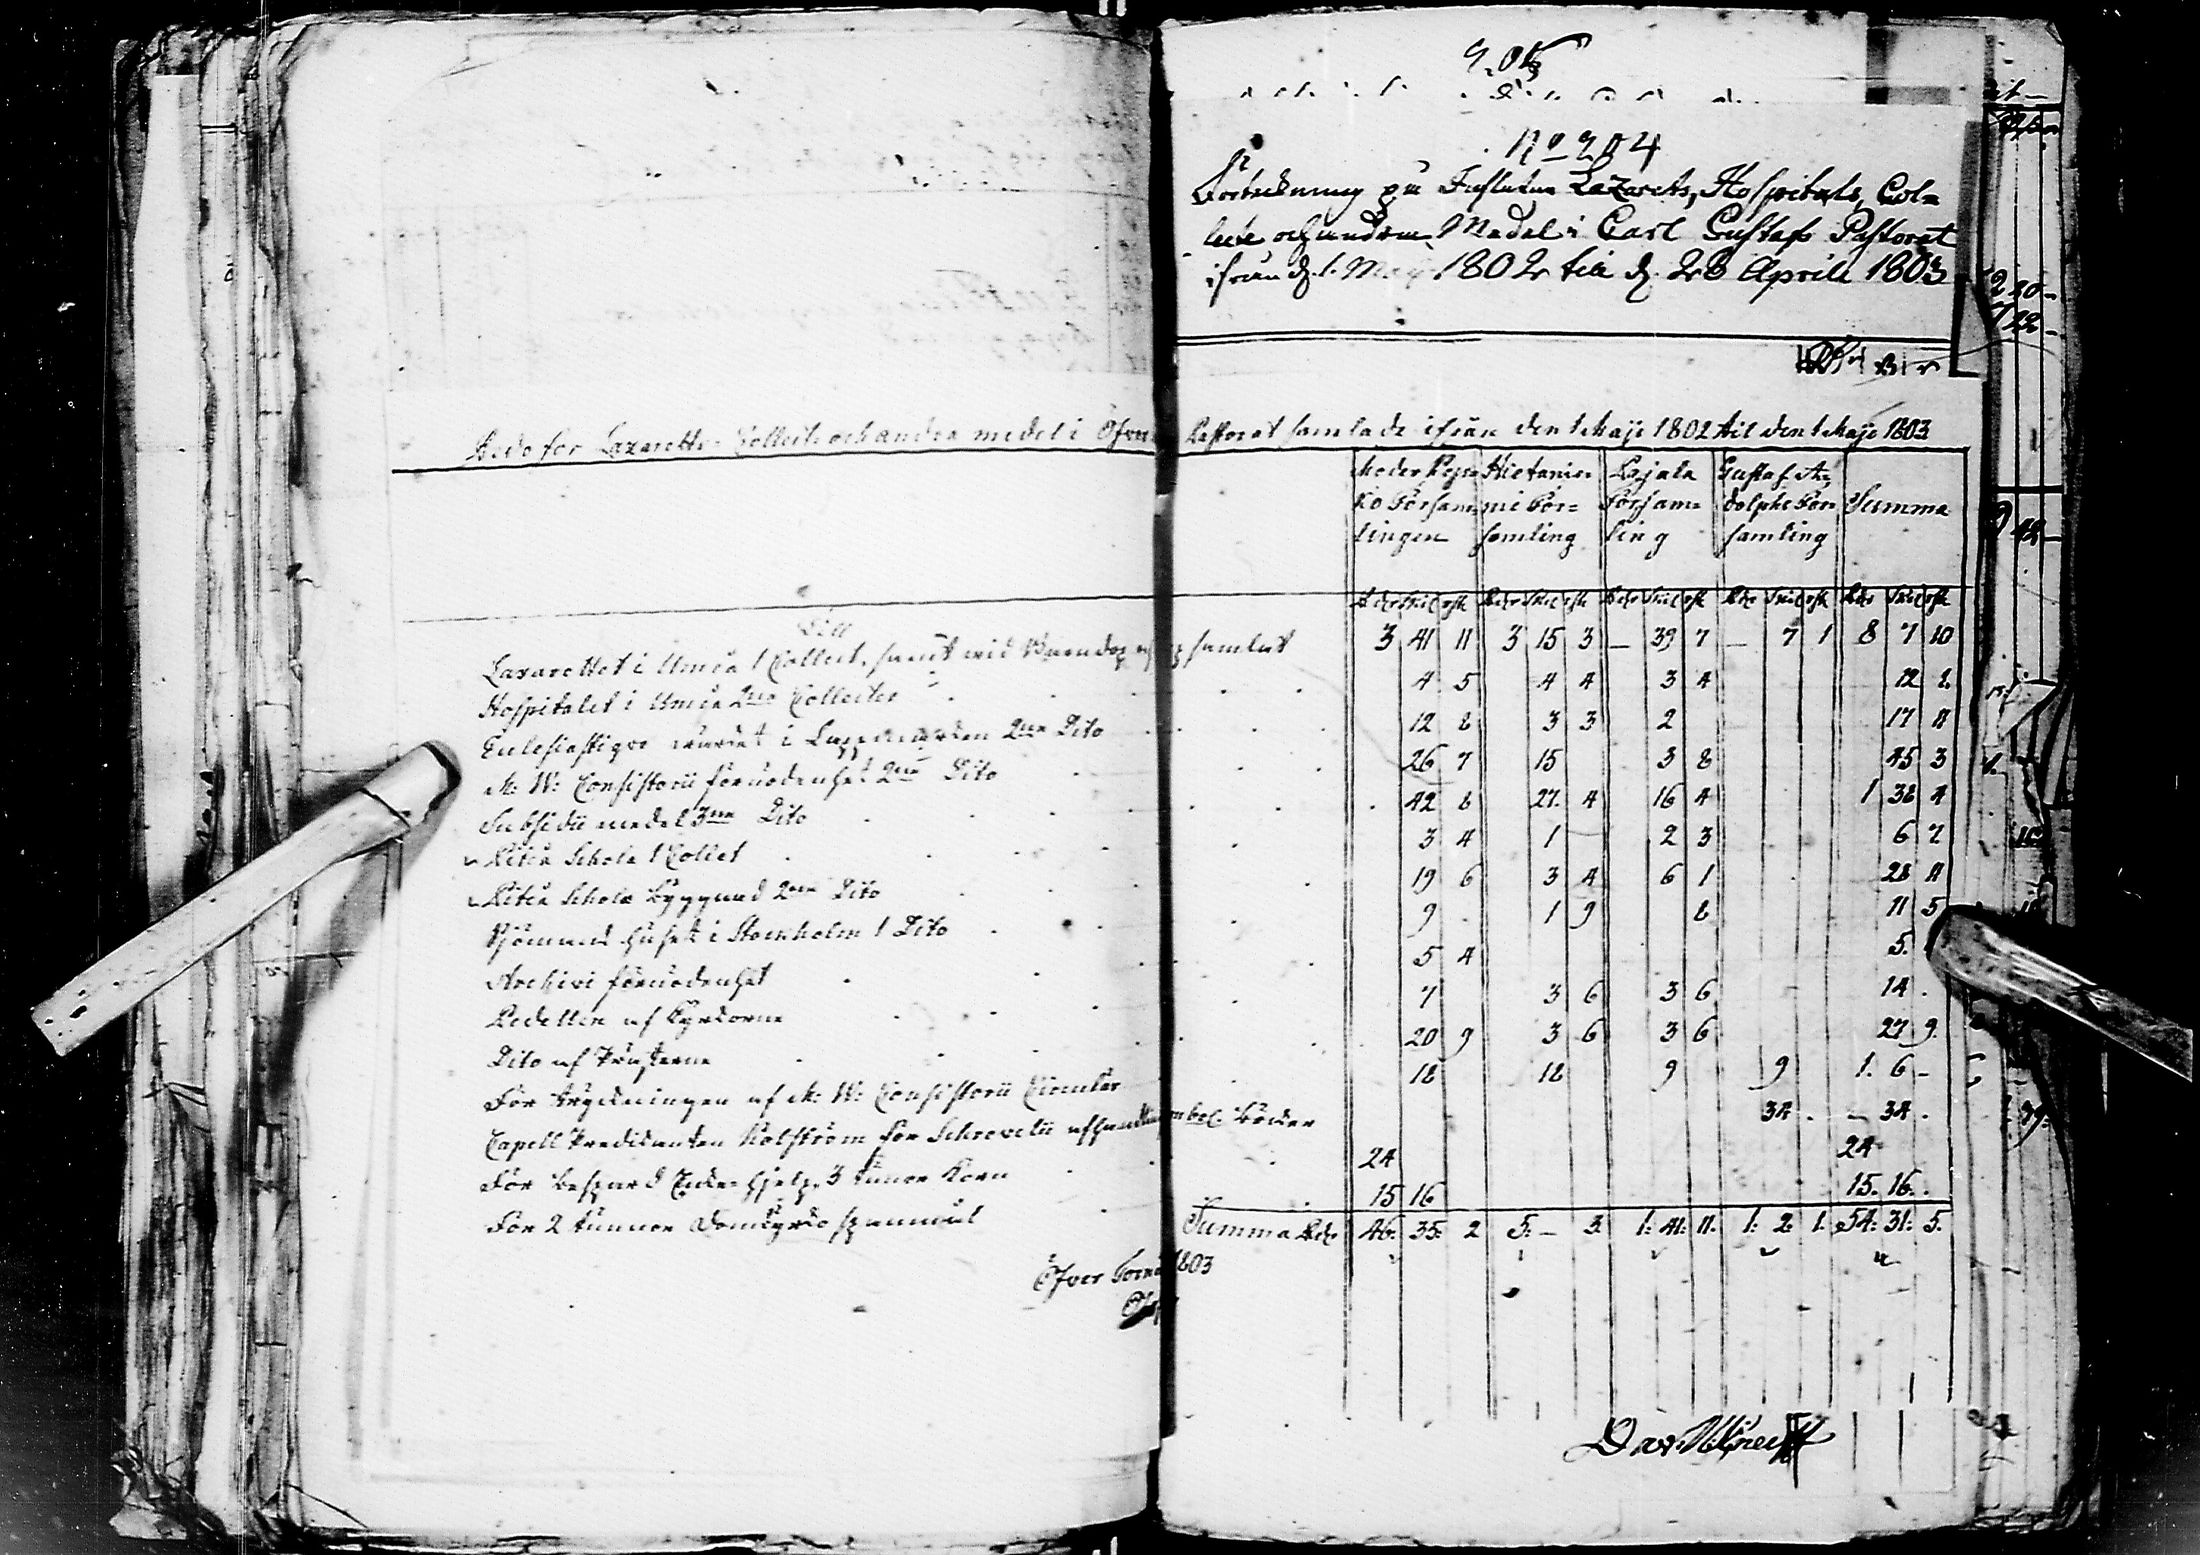 No 204
Förteckning på Influtne Lazarets, Hospitals, Col=
lecte och andra Medel i Carl Gustafs Pastorat
ifrån d. 1. May 1802 till d. 28 Aprill 1803
Redo för Lazaretts- Collect och andra medel i Öfver Pastorat samlade ifrån den 1 Maji 1802 til den 1 Maji 1803
Moder Kyr= Hietanie= Pajala Gustaf A= Summa
ko Försam= mi För= Församl= dolphs För=
lingen samling ling samling
Rdr Skil rst Rdr Skil rst Rdr Skil rst Rdr Skil rst Rdr Skil rst
Till
Lazarettet i Umeå 1 Collect, samt vid samlat 3 41 11 3 15 3 — 39 7 — 7 1 8 7 10
Hospitalet i Umeå 2ne Collecter 4 5 4 4 3 4 12 1
Ecclesiastique värdet i Lappmarken 2ne Dito 12 8 3 3 2 17 11
M: W: Consistorii förnödenhet 2ne Dito 26 7 15 3 8 45 3
Subsidii medel 3ne Dito 42 8 27 4 16 4 1 38 4
Piteå Schola 1 Collet 3 4 1 2 3 6 7
Piteå Schole Byggnad 2ne Dito 19 6 3 4 6 1 28 11
Sjömans huset i Stockholm 1 Dito 9 1 9 8 11 5
Archivi förnödenhet 5 4 5.
Pedellen af Kyrkorne 7 3 6 3 6 14
Dito af Prästerne 20 9 3 6 3 6 27 9
För tryckningen af M: W: Consistorii Circulär 18 18 9 9 1. 6 —
Capell Predikanten Kolström för Schrovelii Böcker 34 — 34
För 3 tunnor Korn 24 24
För 2 tunnor Domkyrko spannmål 15 16 15. 16.
Summa Rdr 46: 35: 2 5: — 3 1: 41: 11. 1: 2: 1. 54: 31: 5.
Öfver Torneå 1803